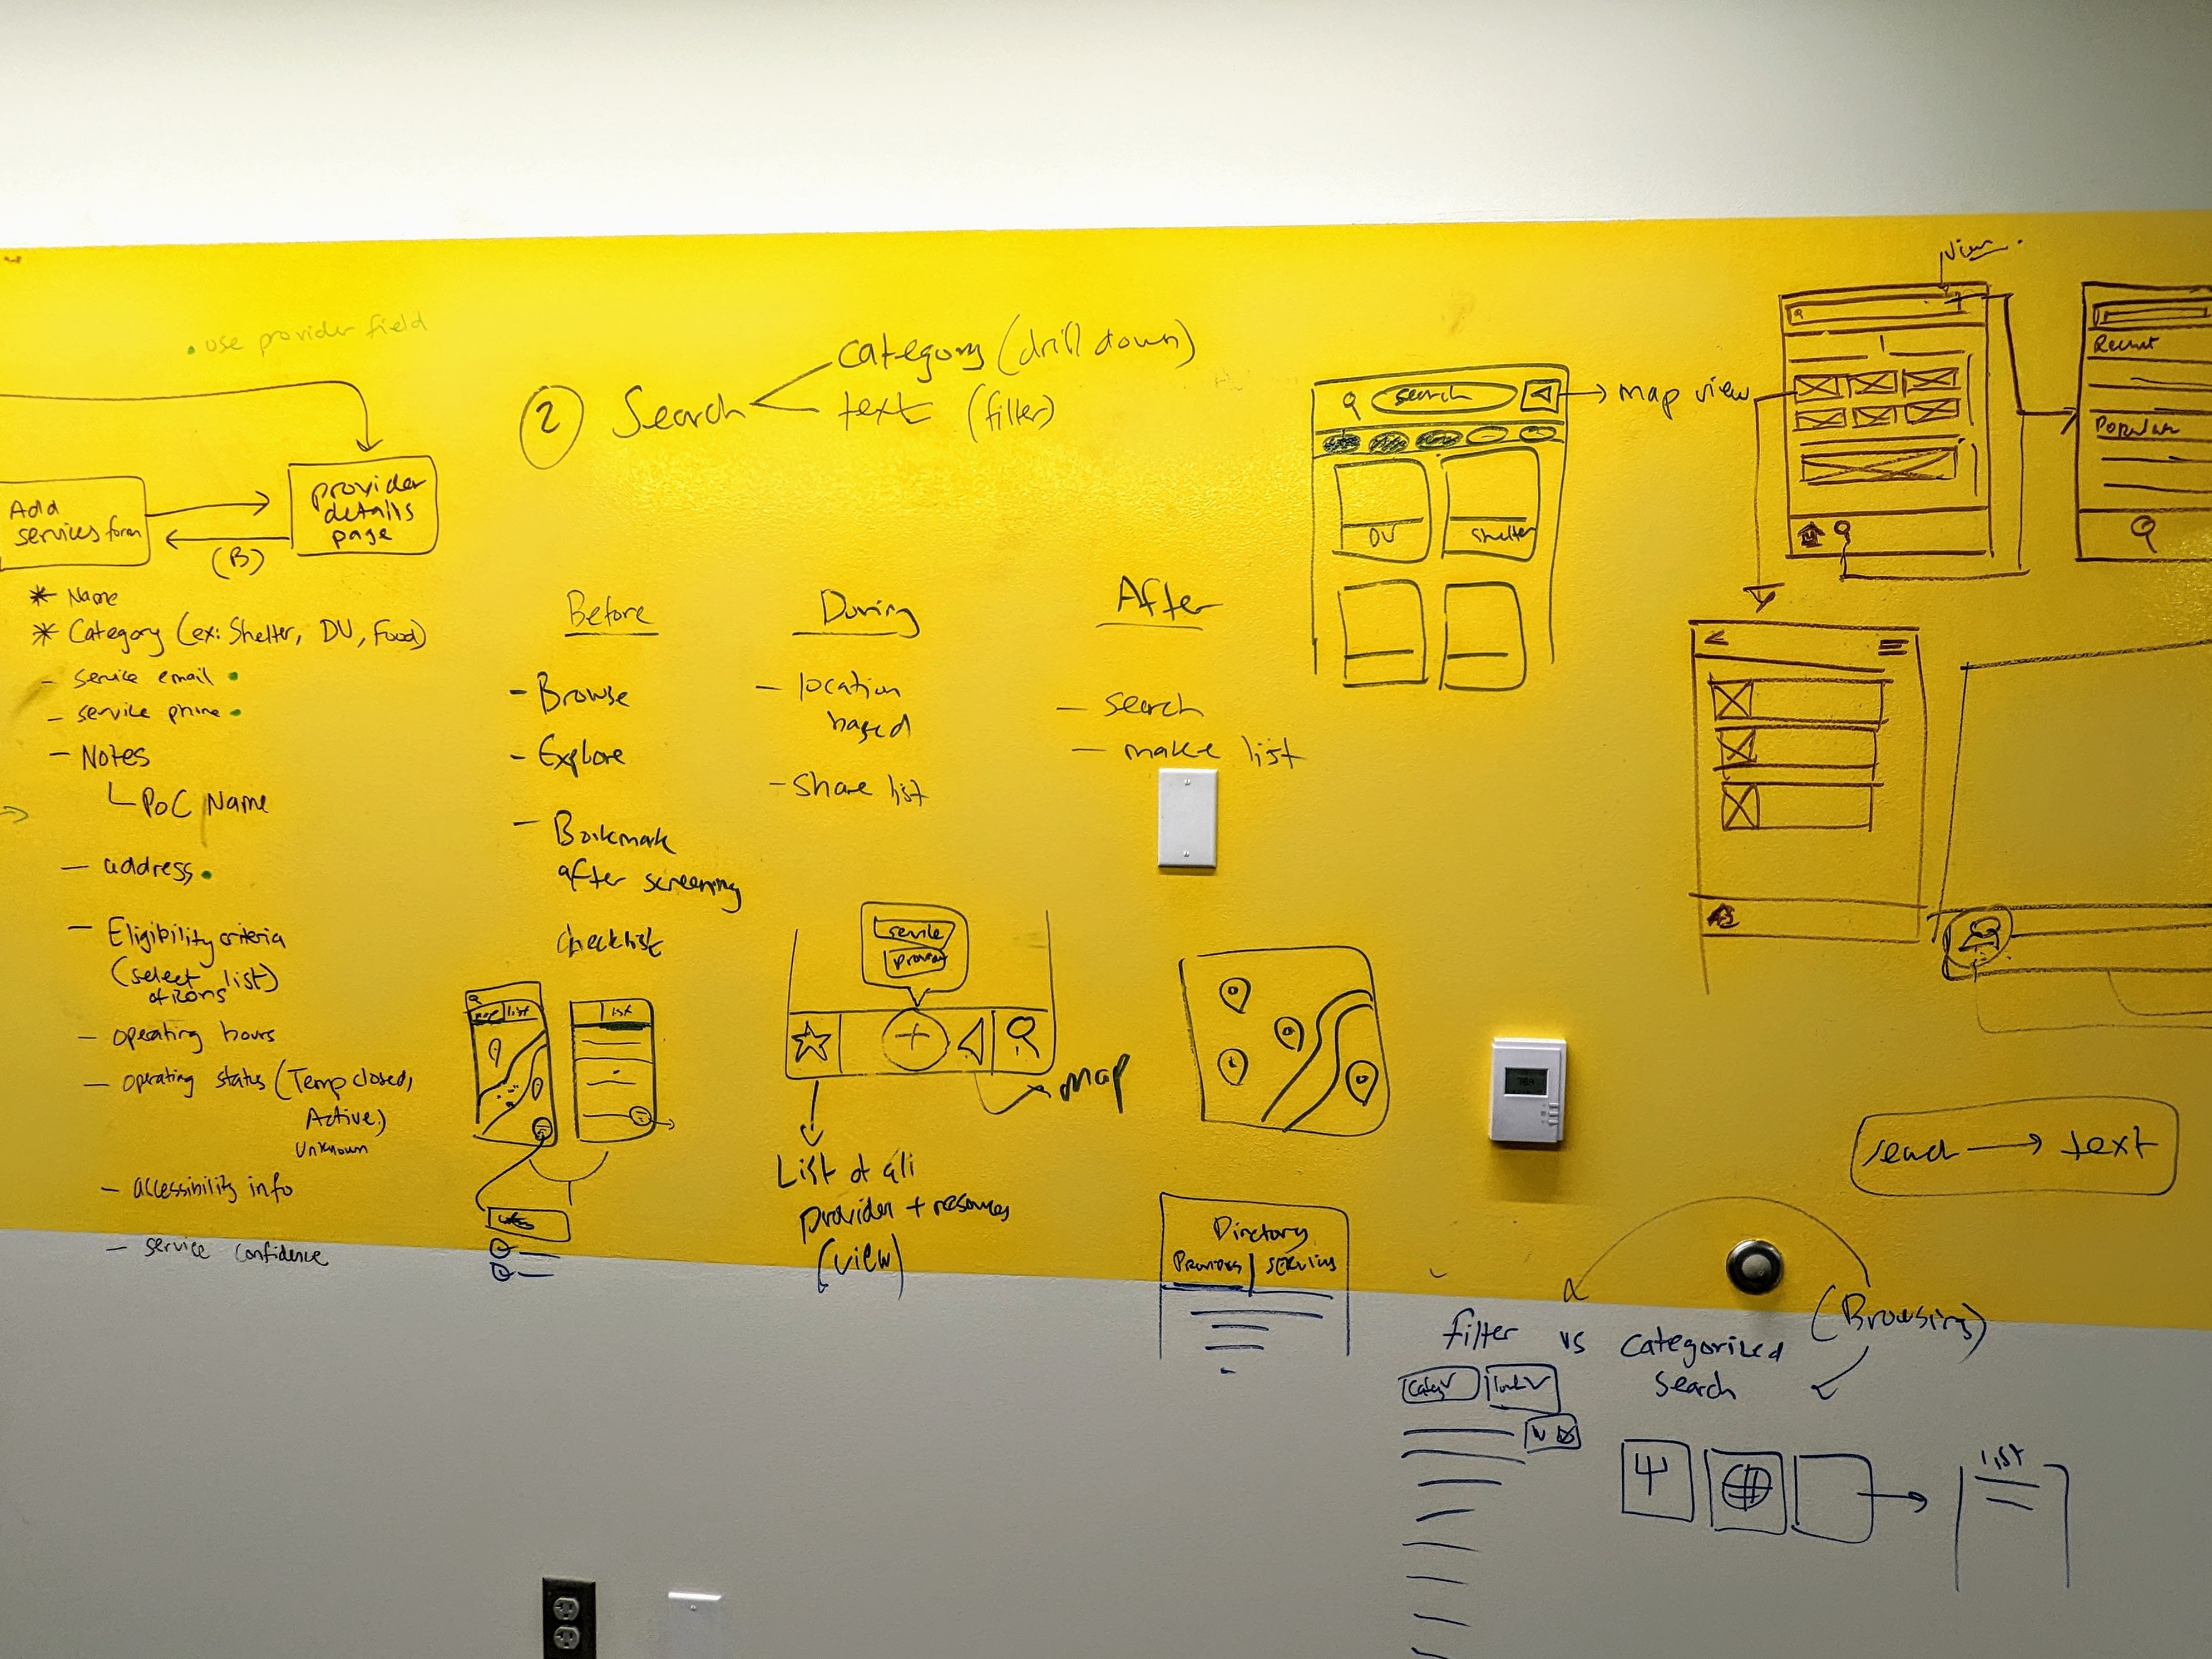 • use provider field
Add
services form
(B)
provider
details
page
* Name
* Category (ex: Shelter, DV, Food)
- service email •
- service phone •
- Notes
PoC Name
- address •
- Eligibility criteria
(select list)
of izons
- operating hours
- operating status (Temp closed,
Active,)
Unknown
- accessibility info
- service confidence
2 Search
category (drill down)
text (filter)
Before
- Browse
- Explore
- Bookmark
after screening
checklist
During
- location
based
- share list
After
- search
- make list
map list
list
service
provider
map
List of all
provider + resources
(view)
Directory
Providers services
search
map view
DV
Shelter
view
Recent
Popular
search → text
filter vs categorized
search
(Browsing)
list